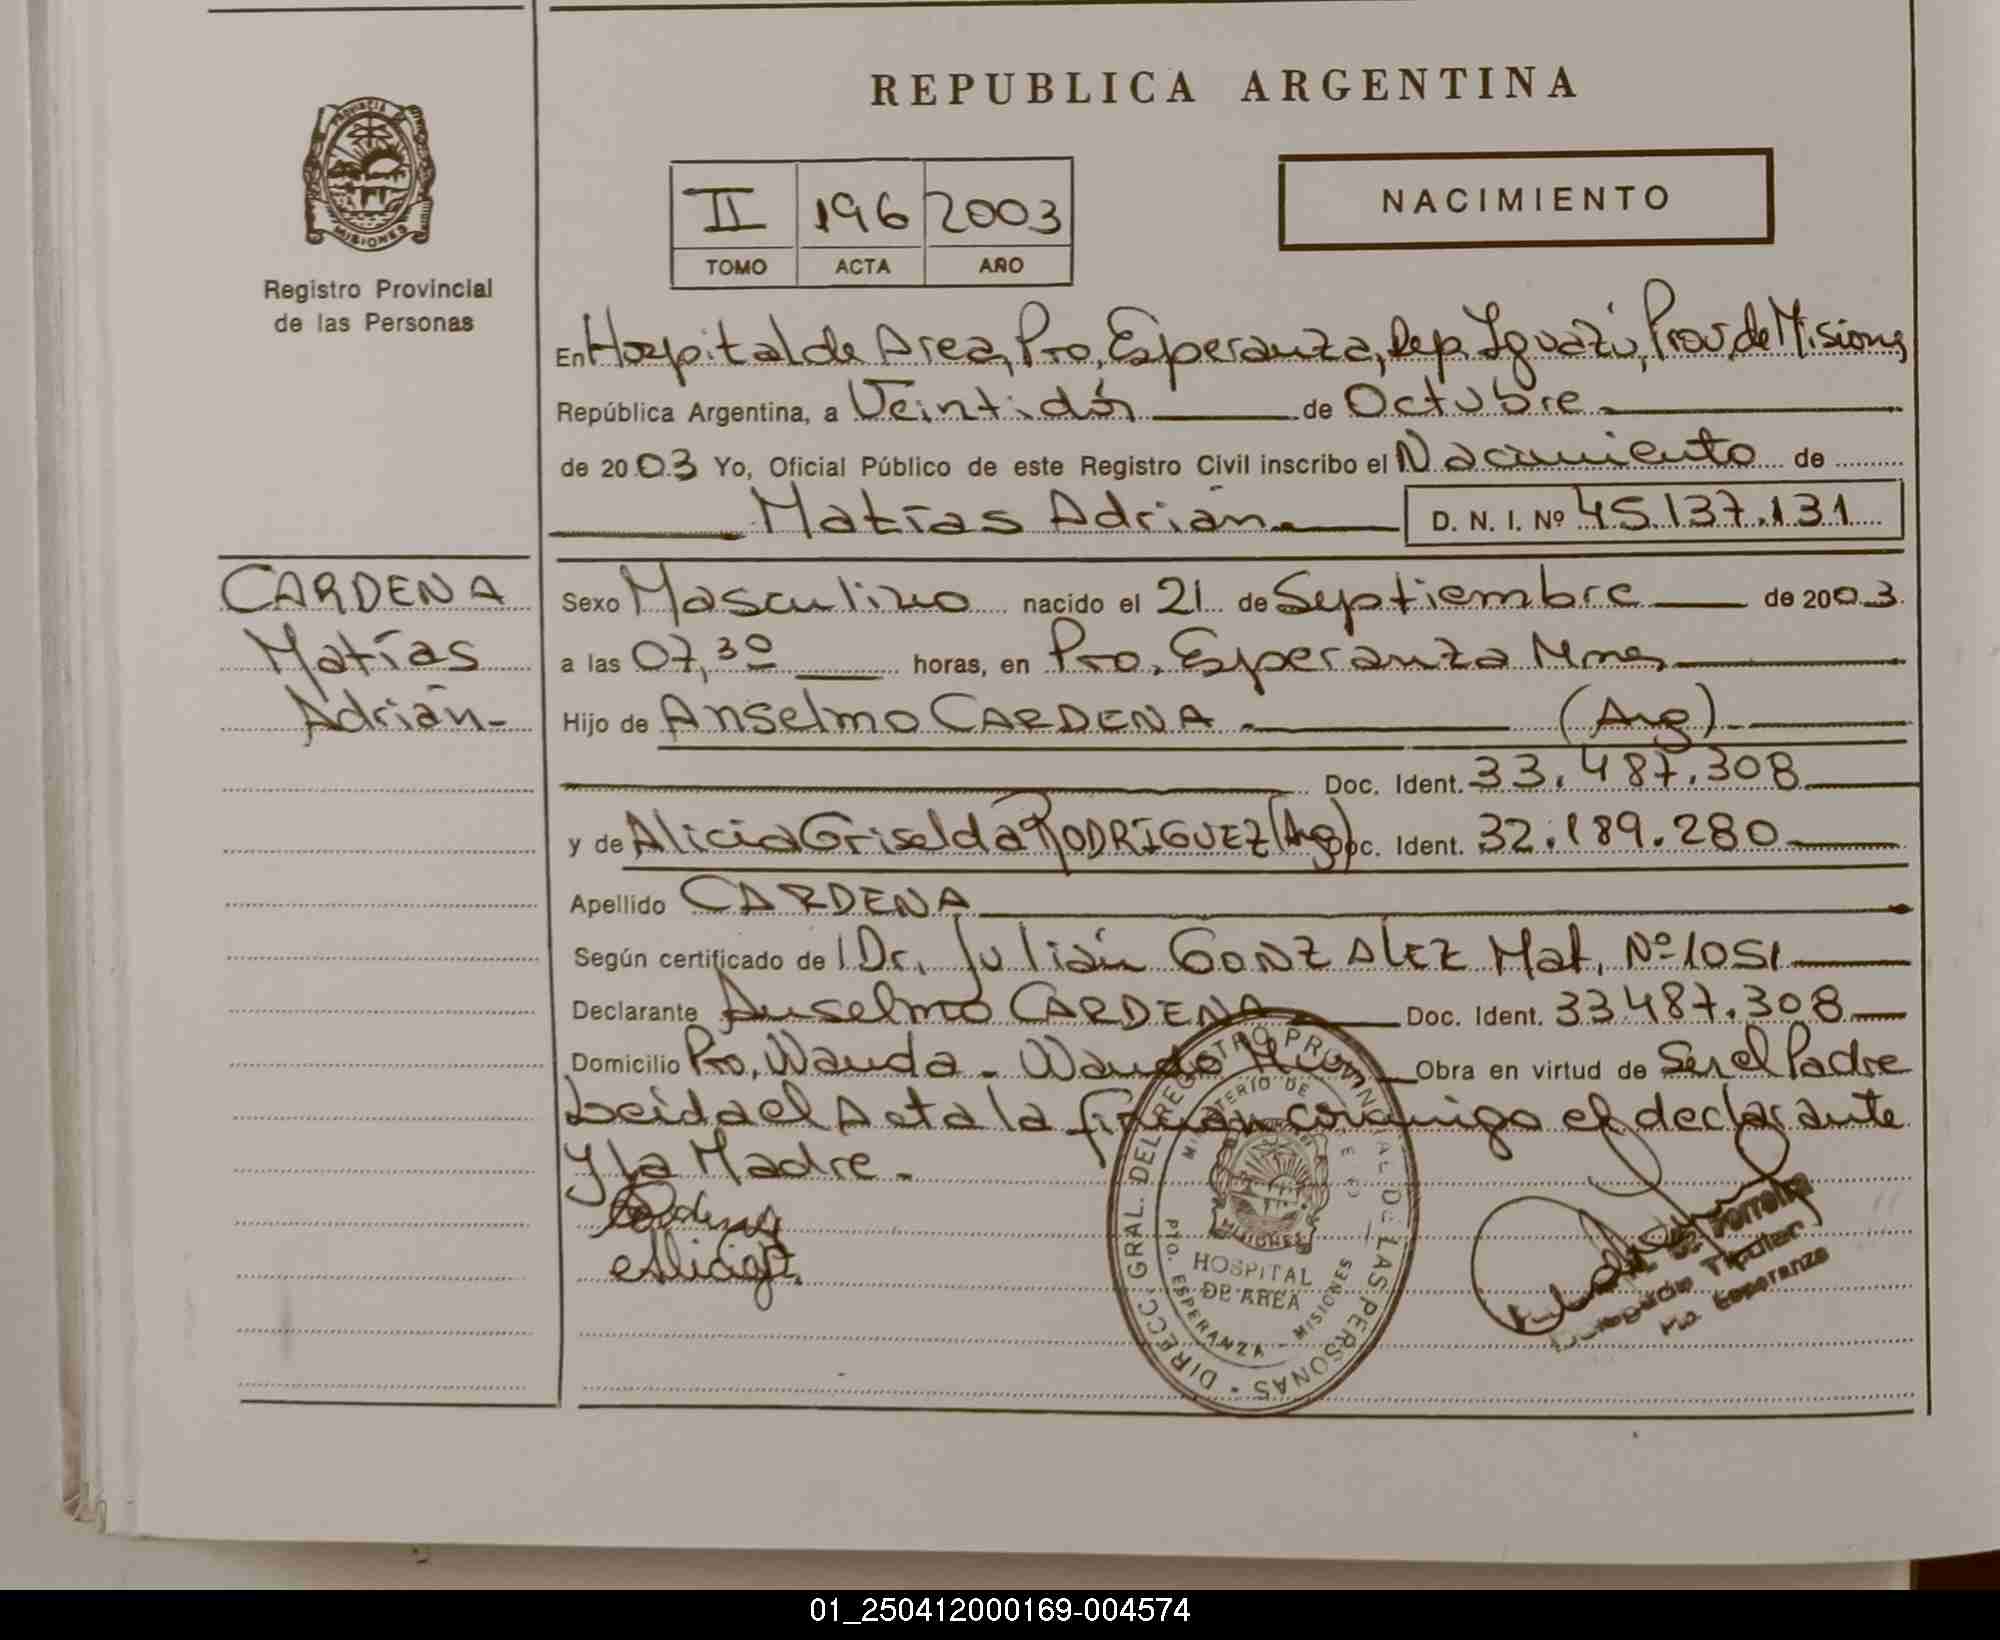 REPUBLICA ARGENTINA
PROVINCIA DE
MISIONES
Registro Provincial
de las Personas
II 196 2003
TOMO ACTA AÑO
NACIMIENTO
En Hospital de Area, Pto, Esperanza, Dep. Iguazú, Prov, de Misiones
República Argentina, a Veintidós de Octubre
de 2003 Yo, Oficial Público de este Registro Civil inscribo el Nacimiento de
Matías Adrián D. N. I. Nº 45.137.131
CARDENA
Matías
Adrián-
Sexo Masculino nacido el 21 de Septiembre de 2003
a las 07,30 horas, en Pto. Esperanza Mnes
Hijo de Anselmo CARDENA (Arg)
Doc. Ident. 33.487.308
y de Alicia Griselda RODRIGUEZ (Arg) Doc. Ident. 32.189.280
Apellido CARDENA
Según certificado de Dr. Julián GONZALEZ Mat. Nº 1051
Declarante Anselmo CARDENA Doc. Ident. 33487.308
Domicilio Pto. Wanda - Wanda Obra en virtud de Ser el Padre
Leida el Acta la firman conmigo el declarante
y la Madre.
DIRECC. GRAL. DEL REGISTRO PROVINCIAL DE LAS PERSONAS
MINISTERIO DE
MISIONES
HOSPITAL
DE AREA
PTO. ESPERANZA - MISIONES
Ferreira
Titular
Pto Esperanza
01_250412000169-004574